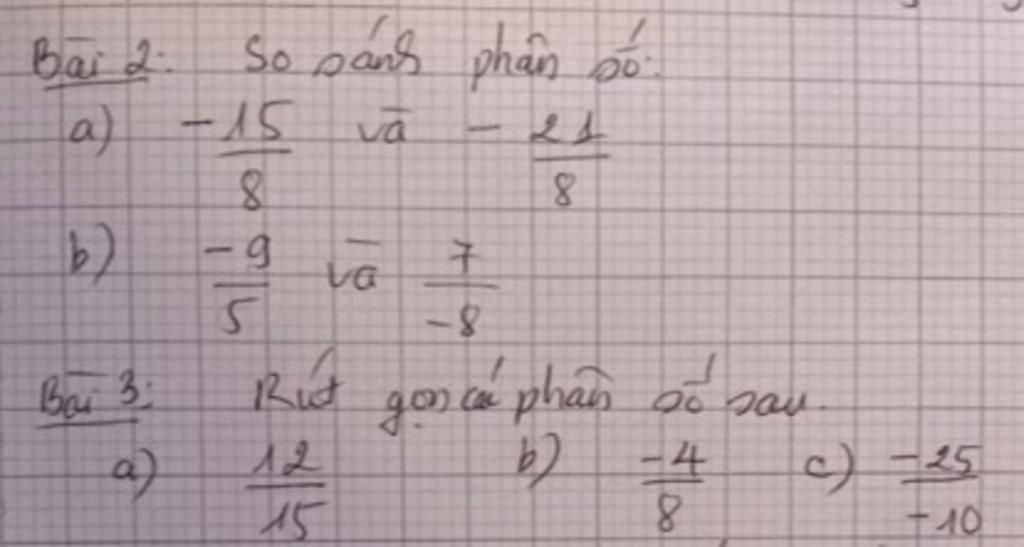 Bài 2: So sánh phân số:
a) -15/8 và - 21/8
b) -9/5 và 7/-8
Bài 3: Rút gọn các phân số sau.
a) 12/15 b) -4/8 c) -25/-10